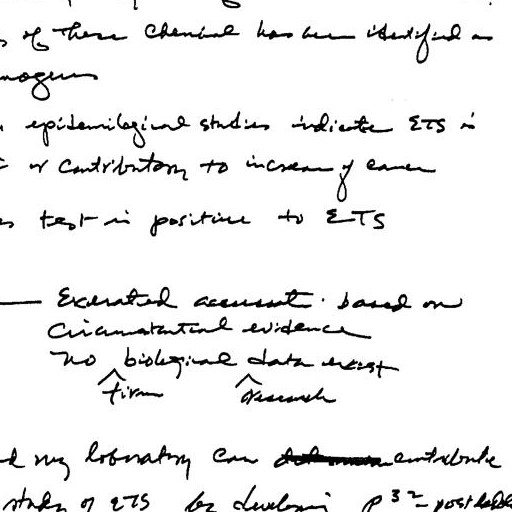 of these chemical has been identified as
nogens
epidemilogical studies indicate ETS is
or contributory to increase of cancer
test is positive to ETS
Exerated assessment. based on
circumstantial evidence
no biological data exist
firm research
my laboratory can contribute
study of ETS by developing p32-postlabe